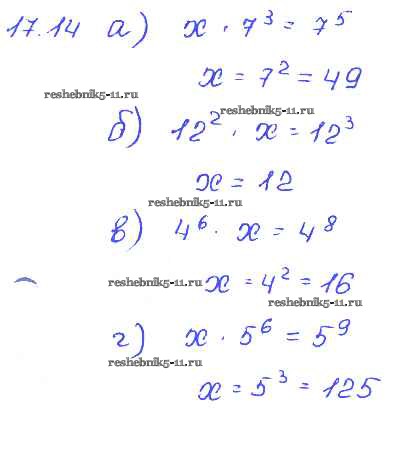 17.14 а) x · 7³ = 7⁵
x = 7² = 49
reshebnik5-11.ru
reshebnik5-11.ru
б) 12² · x = 12³
x = 12
reshebnik5-11.ru
в) 4⁶ · x = 4⁸
reshebnik5-11.ru x = 4² = 16
reshebnik5-11.ru
г) x · 5⁶ = 5⁹
reshebnik5-11.ru
x = 5³ = 125